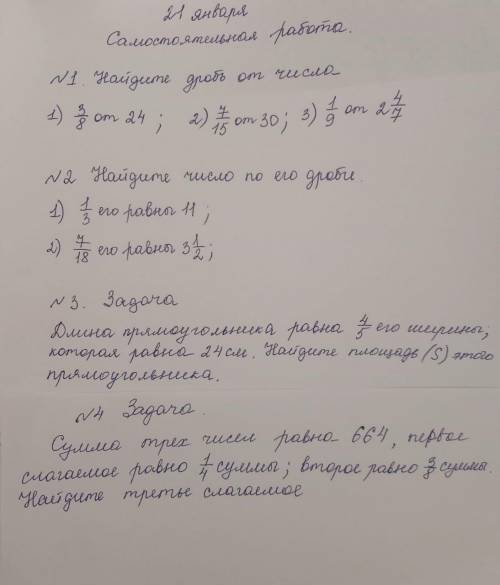 21 января
Самостоятельная работа.
№1. Найдите дробь от числа
1) 3/8 от 24 ; 2) 7/15 от 30 ; 3) 1/9 от 2 4/7
№2 Найдите число по его дроби.
1) 1/3 его равны 11 ;
2) 7/18 его равны 3 1/2 ;
№3. Задача
Длина прямоугольника равна 4/5 его ширины,
которая равна 24 см. Найдите площадь (S) этого
прямоугольника.
№4 Задача.
Сумма трех чисел равна 664, первое
слагаемое равно 1/4 суммы; второе равно 3/8 суммы.
Найдите третье слагаемое